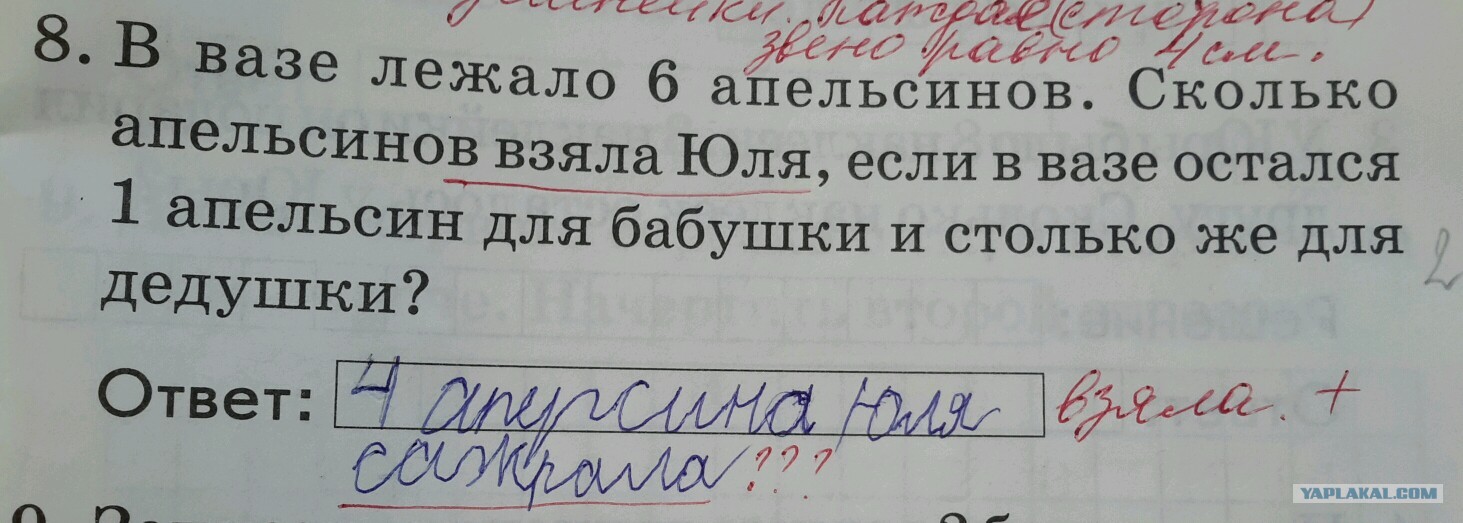 звено равно 4 см.
8. В вазе лежало 6 апельсинов. Сколько
апельсинов взяла Юля, если в вазе остался
1 апельсин для бабушки и столько же для
дедушки?
2
Ответ: 4 аперсина Юля взяла. +
сажрала ???
YAPLAKAL.COM